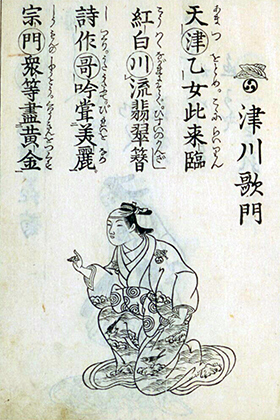 津川歌門
天津乙女此来臨
紅白川流翡翠簪
詩作哥吟聳美麗
宗門衆等盡黄金